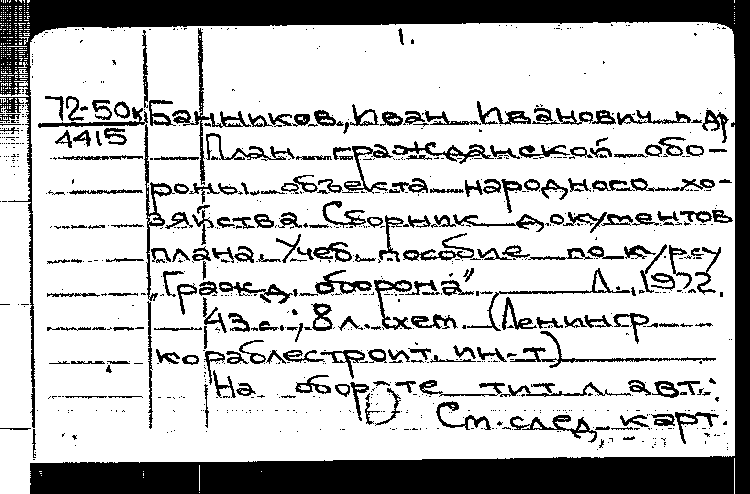 1.
72-50к Банников, Иван Иванович и др.
4415
План гражданской обо-
роны объекта народного хо-
зяйства. Сборник документов
плана. Учеб. пособие по курсу
„Гражд. оборона”. Л., 1972.
43 с.; 8 л. схем. (Ленингр.
кораблестроит. ин-т)
На обороте тит. л. авт.:
См. след. карт.